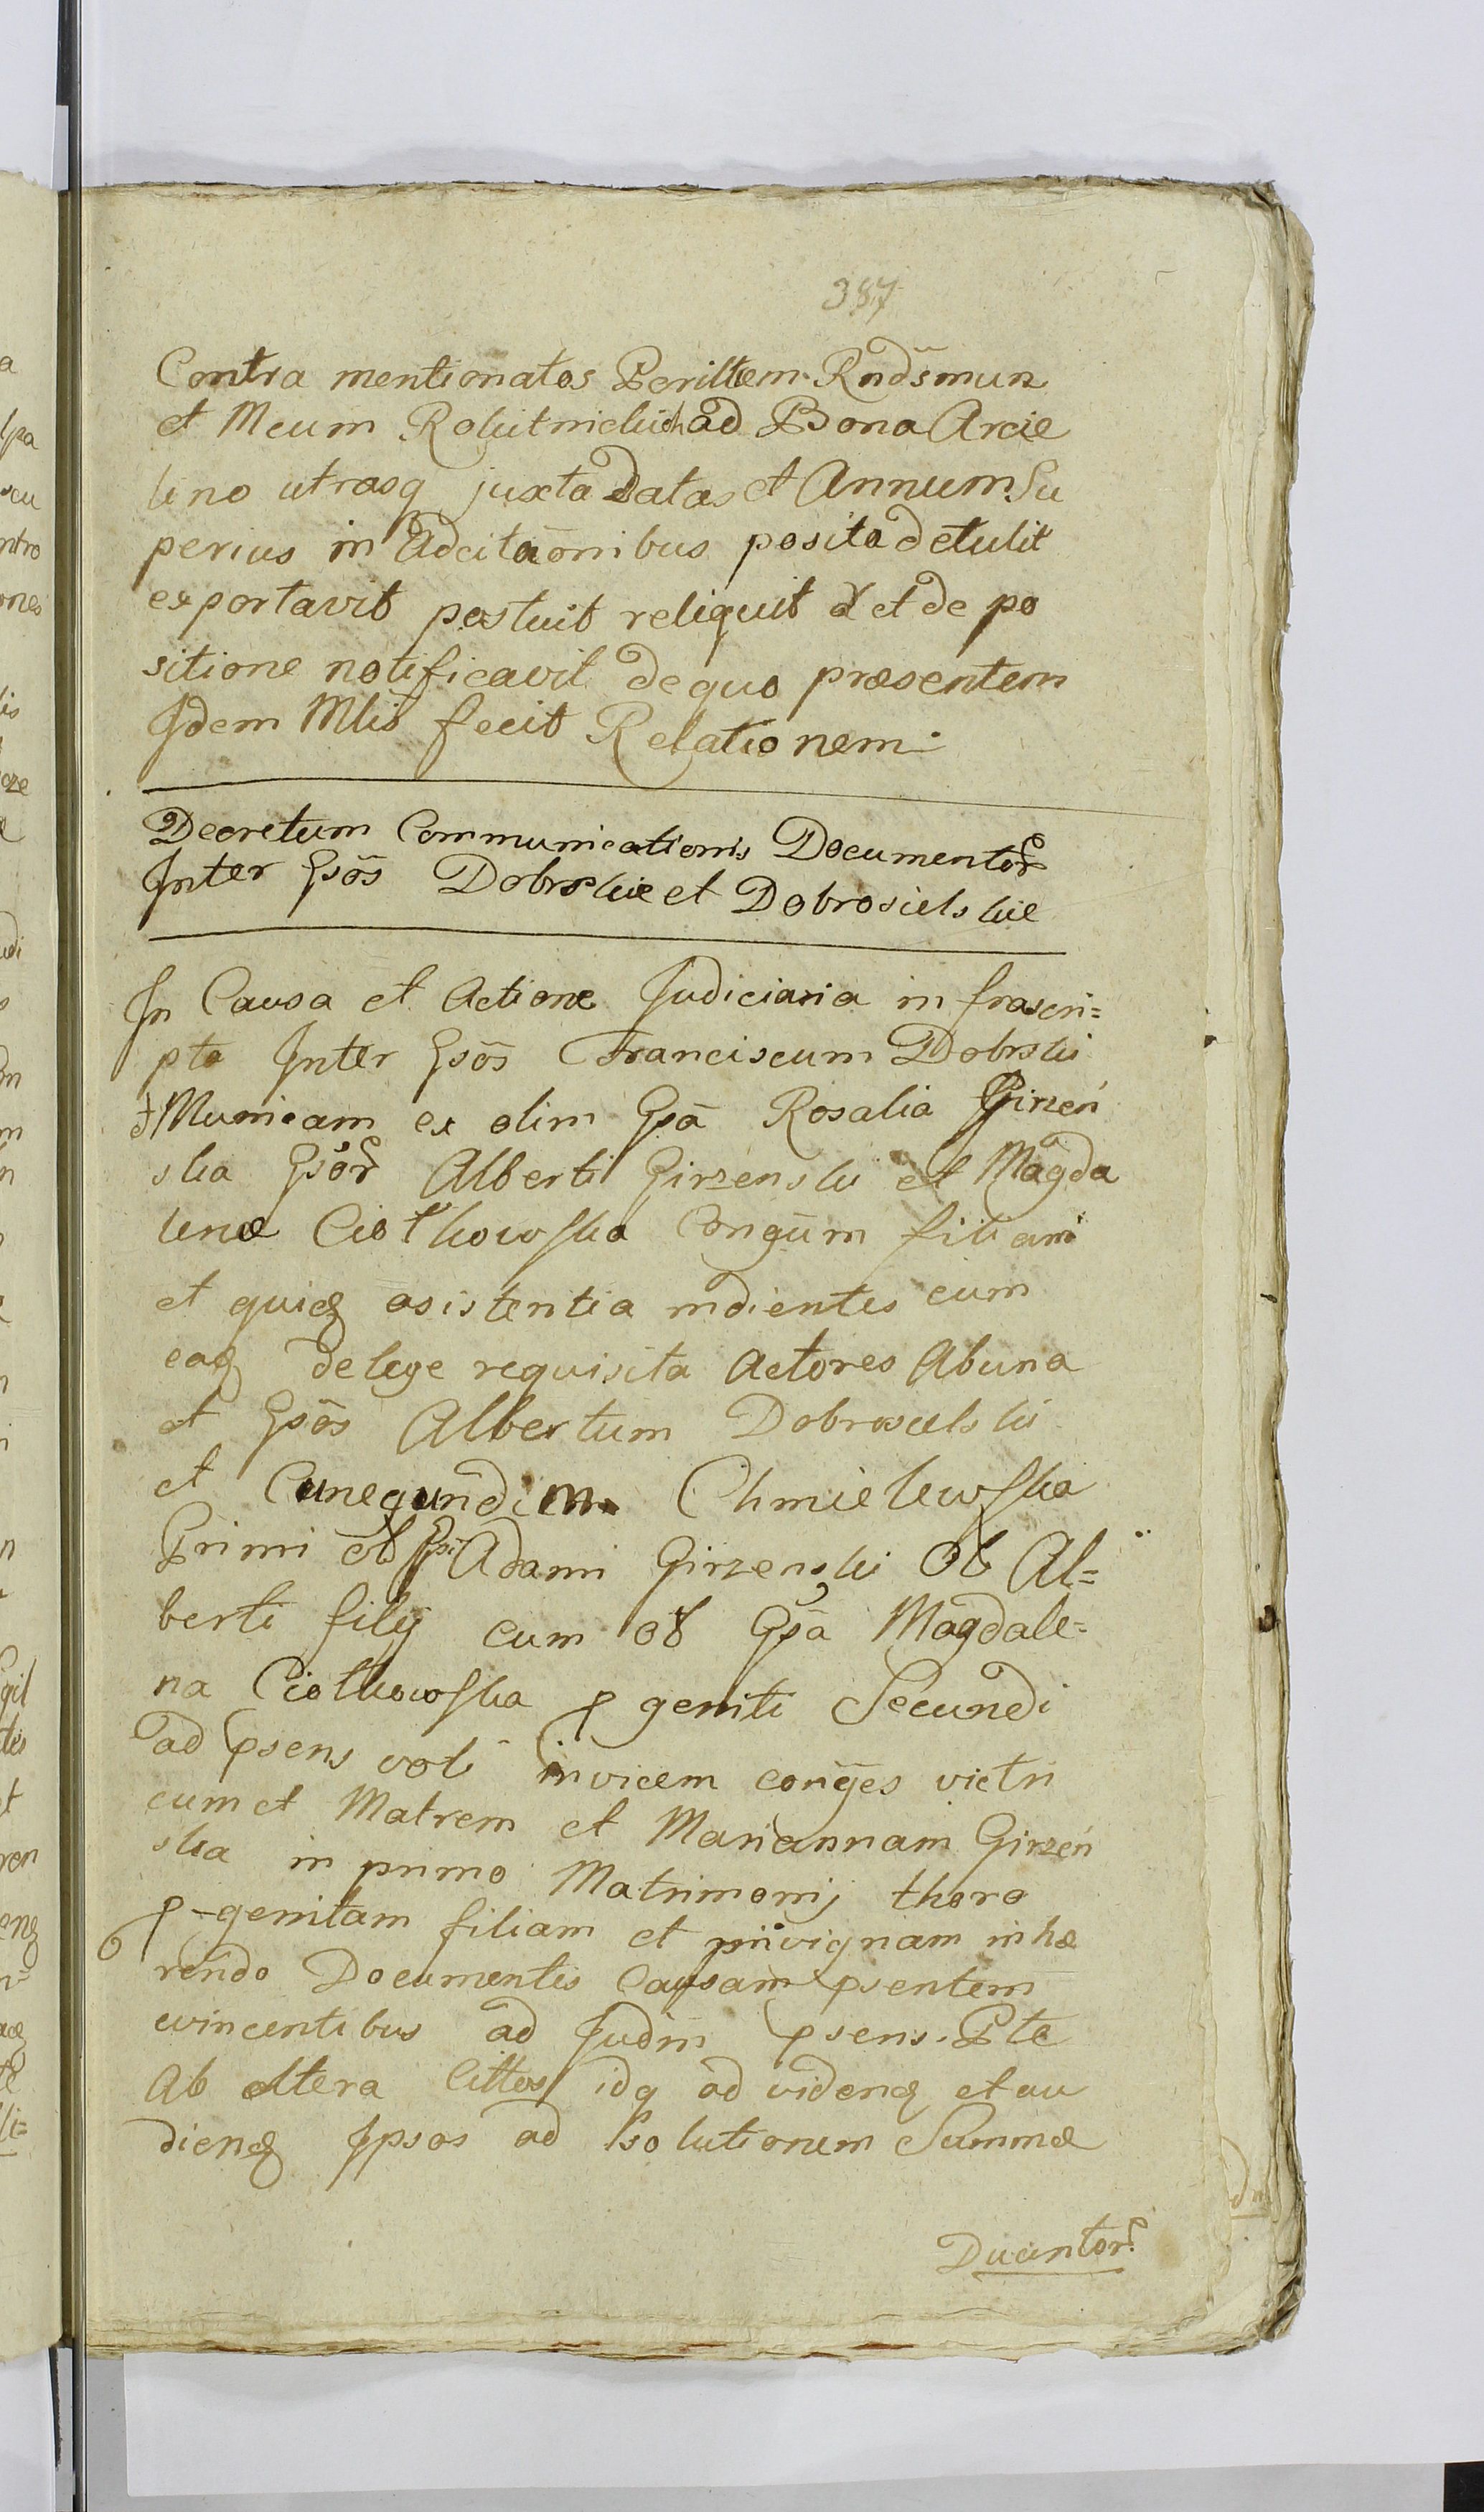 387
Contra mentionatos Perilltem Rndsmum
et Meum Rokitnickich ad Bona Arcie
lino utrasq juxta Datas et Annum Su
perius in Adcitaonibus posita detulit
exportavit postuit reliquit & et de po
sitione notificavit de quo præsentem
Idem Mlis fecit Relationem.
Decretum Communicationis Documentor
Inter Gsōs Dobrskie et Dobrosielskie
In Causa et Actione Judiciaria infrascri=
pta Inter Gsōs Franciscum Dobrski
Municam ex olim Gsā Rosalia Girzeń
ska Gsōr Alberti Girzenski et Magda
lenæ Ciołkowska Congūm filiam
et quidꝫ asistentia indientes cum
eadꝫ de lege requisita Actores Ab una
et Gsōs Albertum Dobrosielski
et Cunegundim Chmielewska
Primi et Gsi Adami Girzenski Ol Al=
berti filij cum ol Gsā Magdale=
na Ciołkowska p geniti Secundi
ad psens voti invicem conges victri
cum et Matrem et Mariannam Girzeń
ska in primo Matrimonij thoro
p-genitam filiam et privignam inhæ
rendo Documentis Causam psentem
evincentibus ad Judm psens. Pte
Ab altera Cittos idq ad videndꝫ et au
diendꝫ Ipsos ad solutionem Summæ
Ducentor